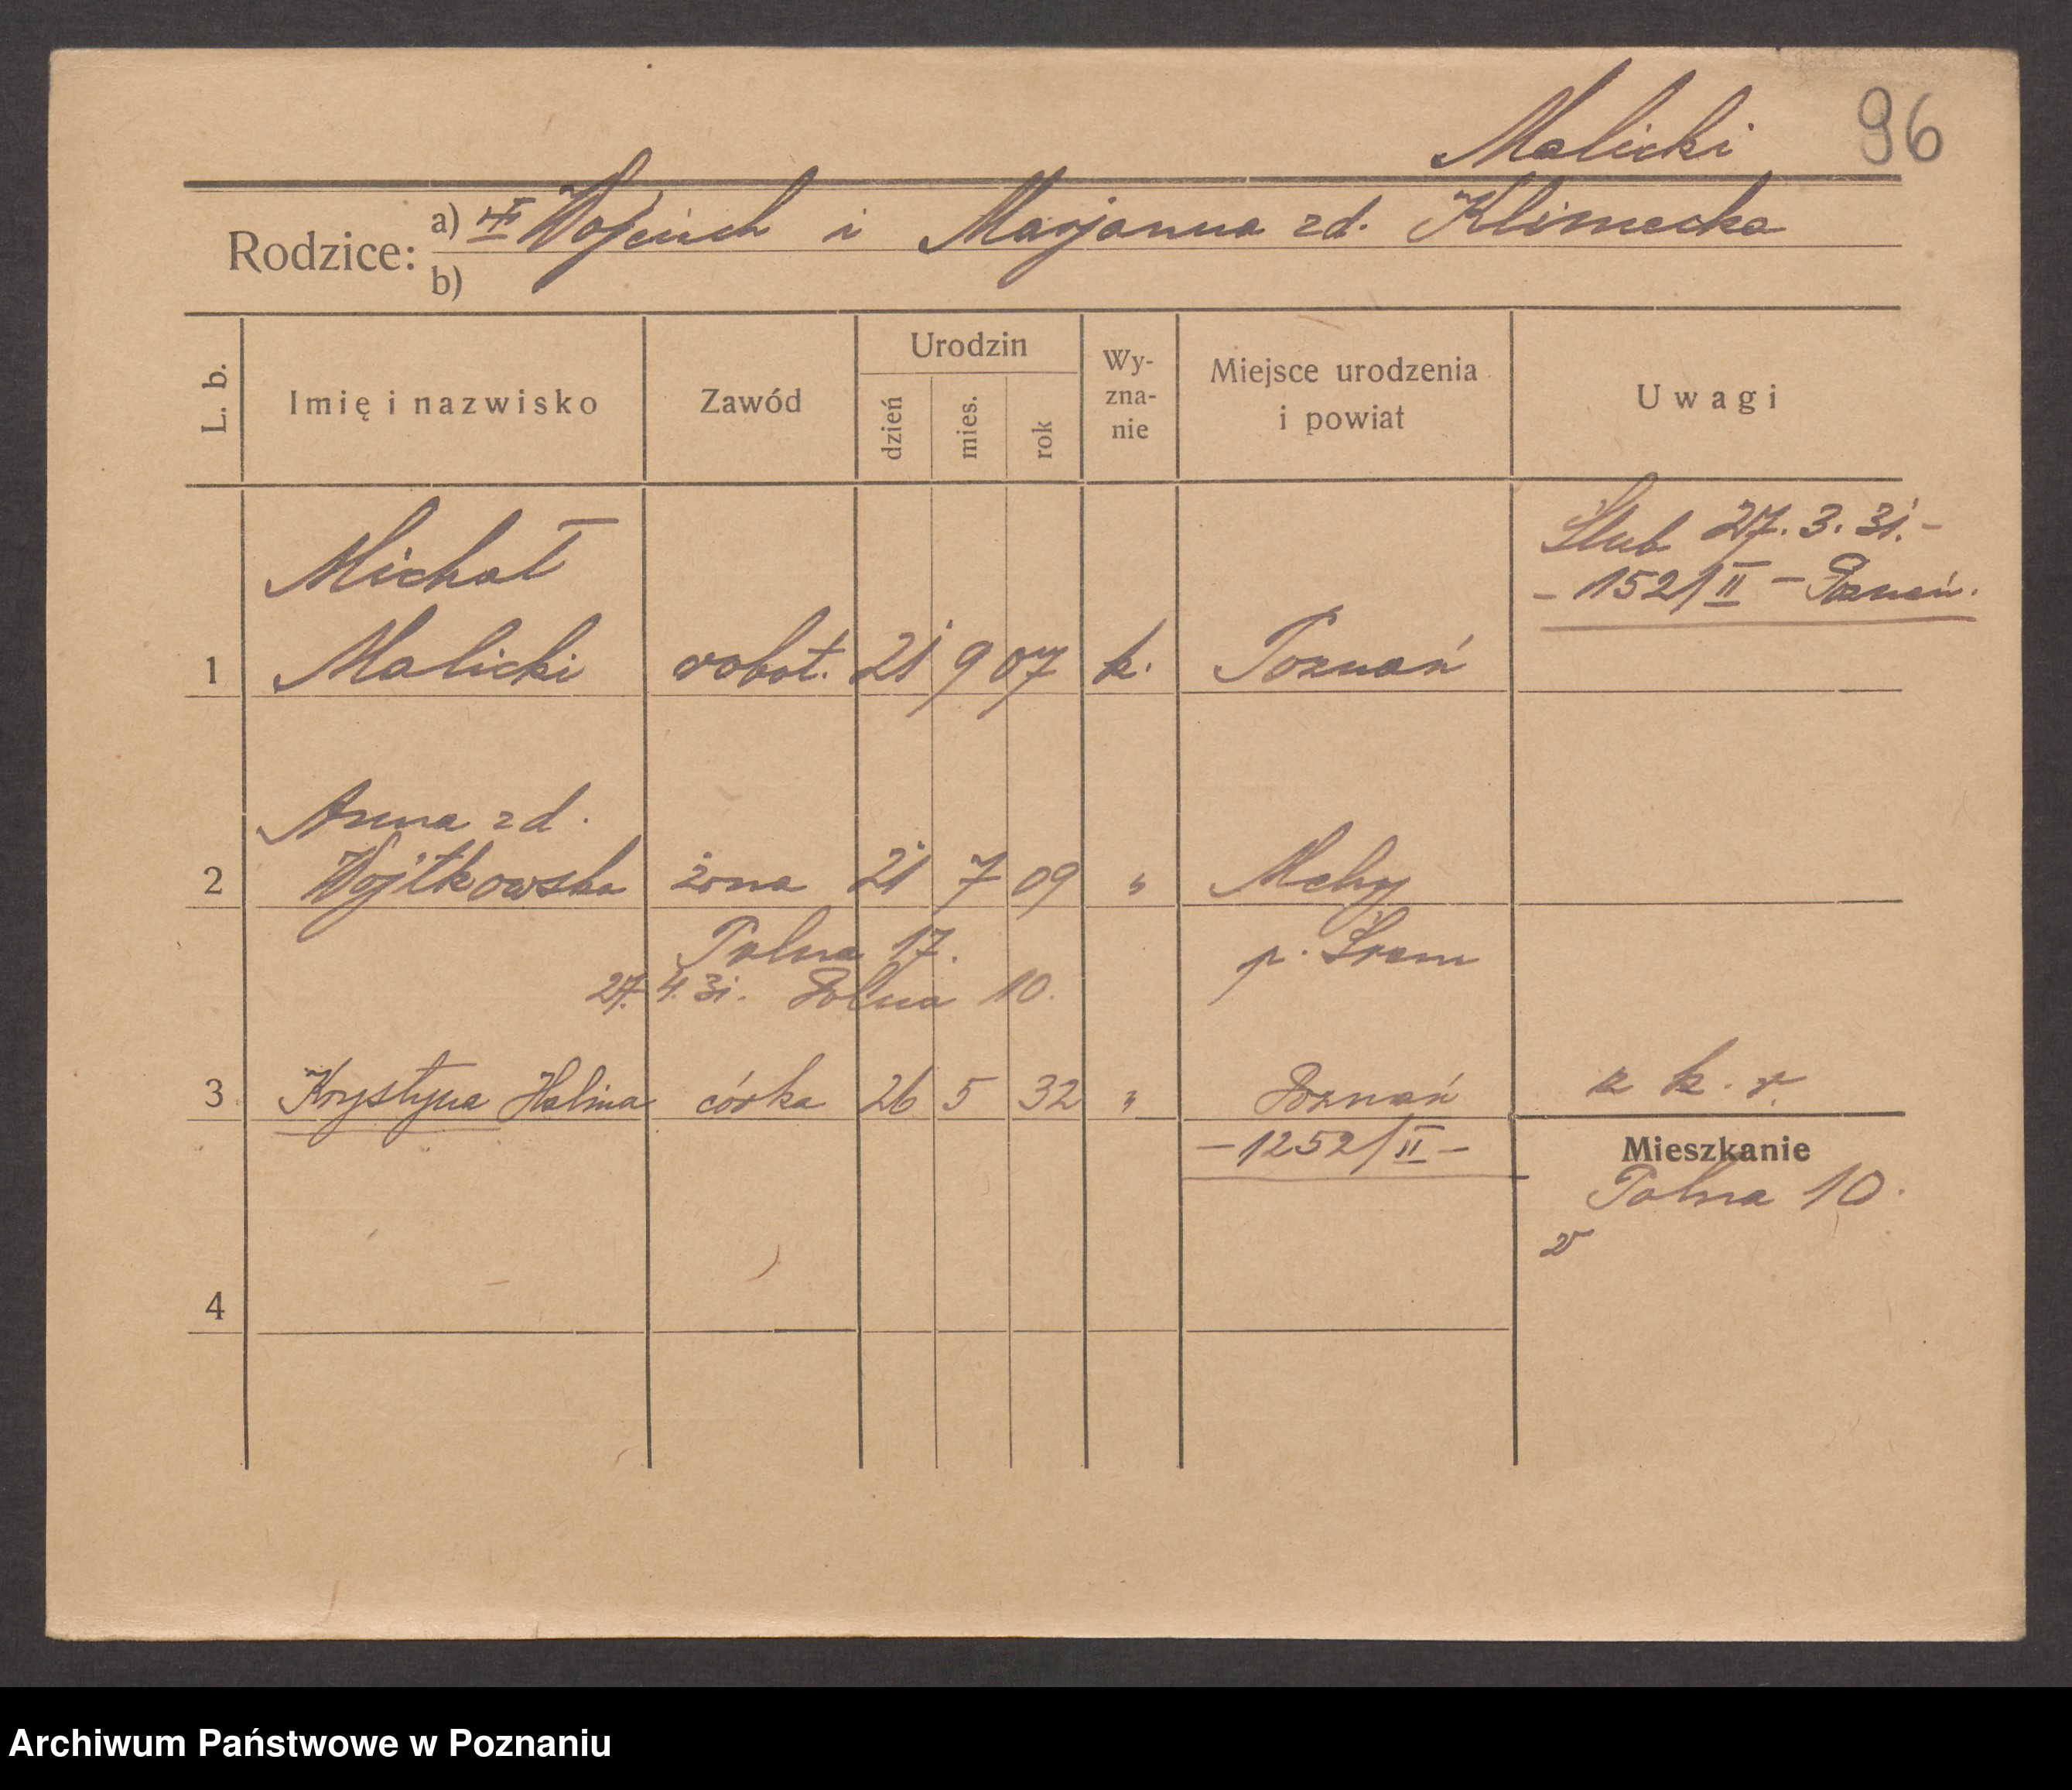 Malicki 96
Rodzice: a) Wojciech i Marjanna zd. Klimecka
b)
L. b. Imię i nazwisko Zawód Urodzin dzień mies. rok Wy-zna-nie Miejsce urodzenia i powiat Uwagi
Ślub 27. 3. 31. -
- 1521/II - Poznań.
Michał
1 Malicki robot. 21 9 07 k. Poznań
Anna zd.
2 Wojtkowska żona 21 7 09 " Mchy
Polna 17. p. Śrem
27. 4. 31. Polna 10.
3 Krystyna Halina córka 26 5 32 " Poznań k. r.
- 1252/II - Mieszkanie
Polna 10.
4
Archiwum Państwowe w Poznaniu